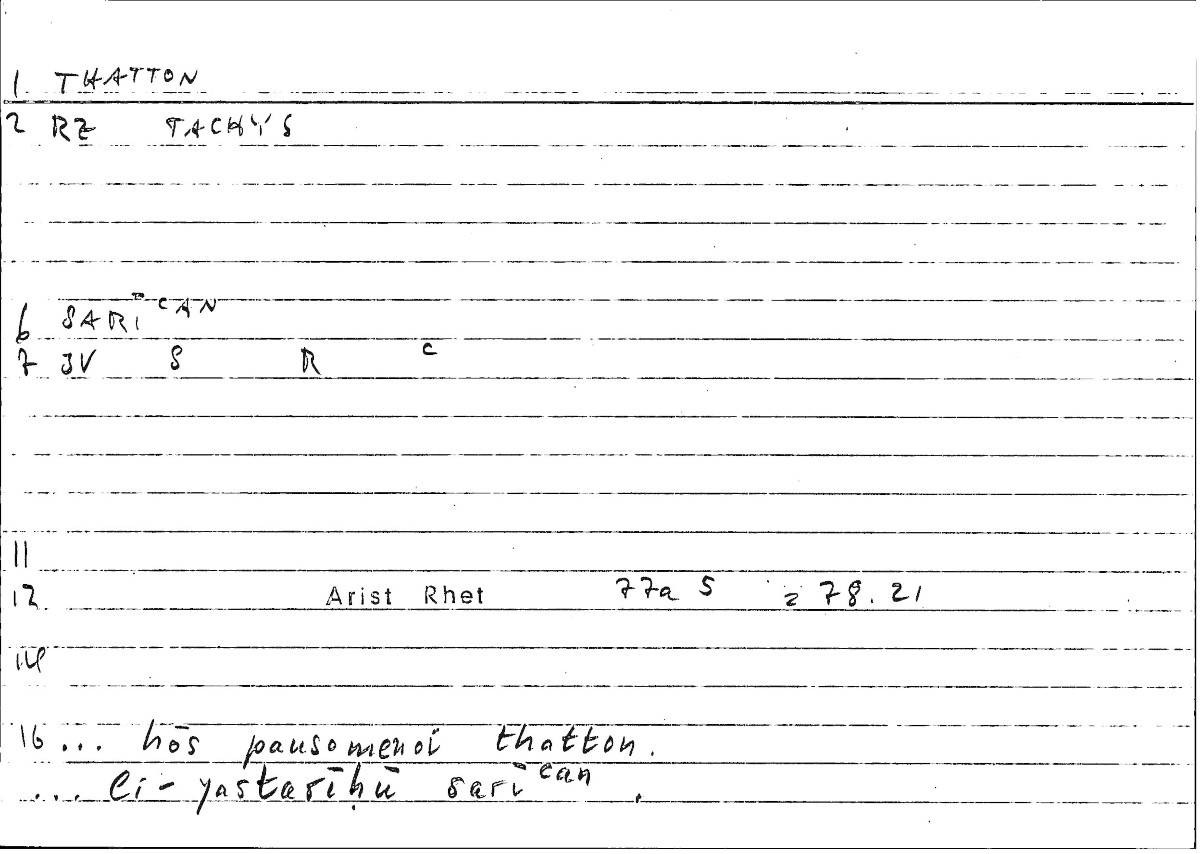 1 THATTON
2 RZ TACHYS
6 SARĪcAN
7 JV S R c
11
12 Arist Rhet 77a 5 = 78.21
14
16 ... hōs pausomenoi thatton.
... li-yastarīḥū sarīcan.